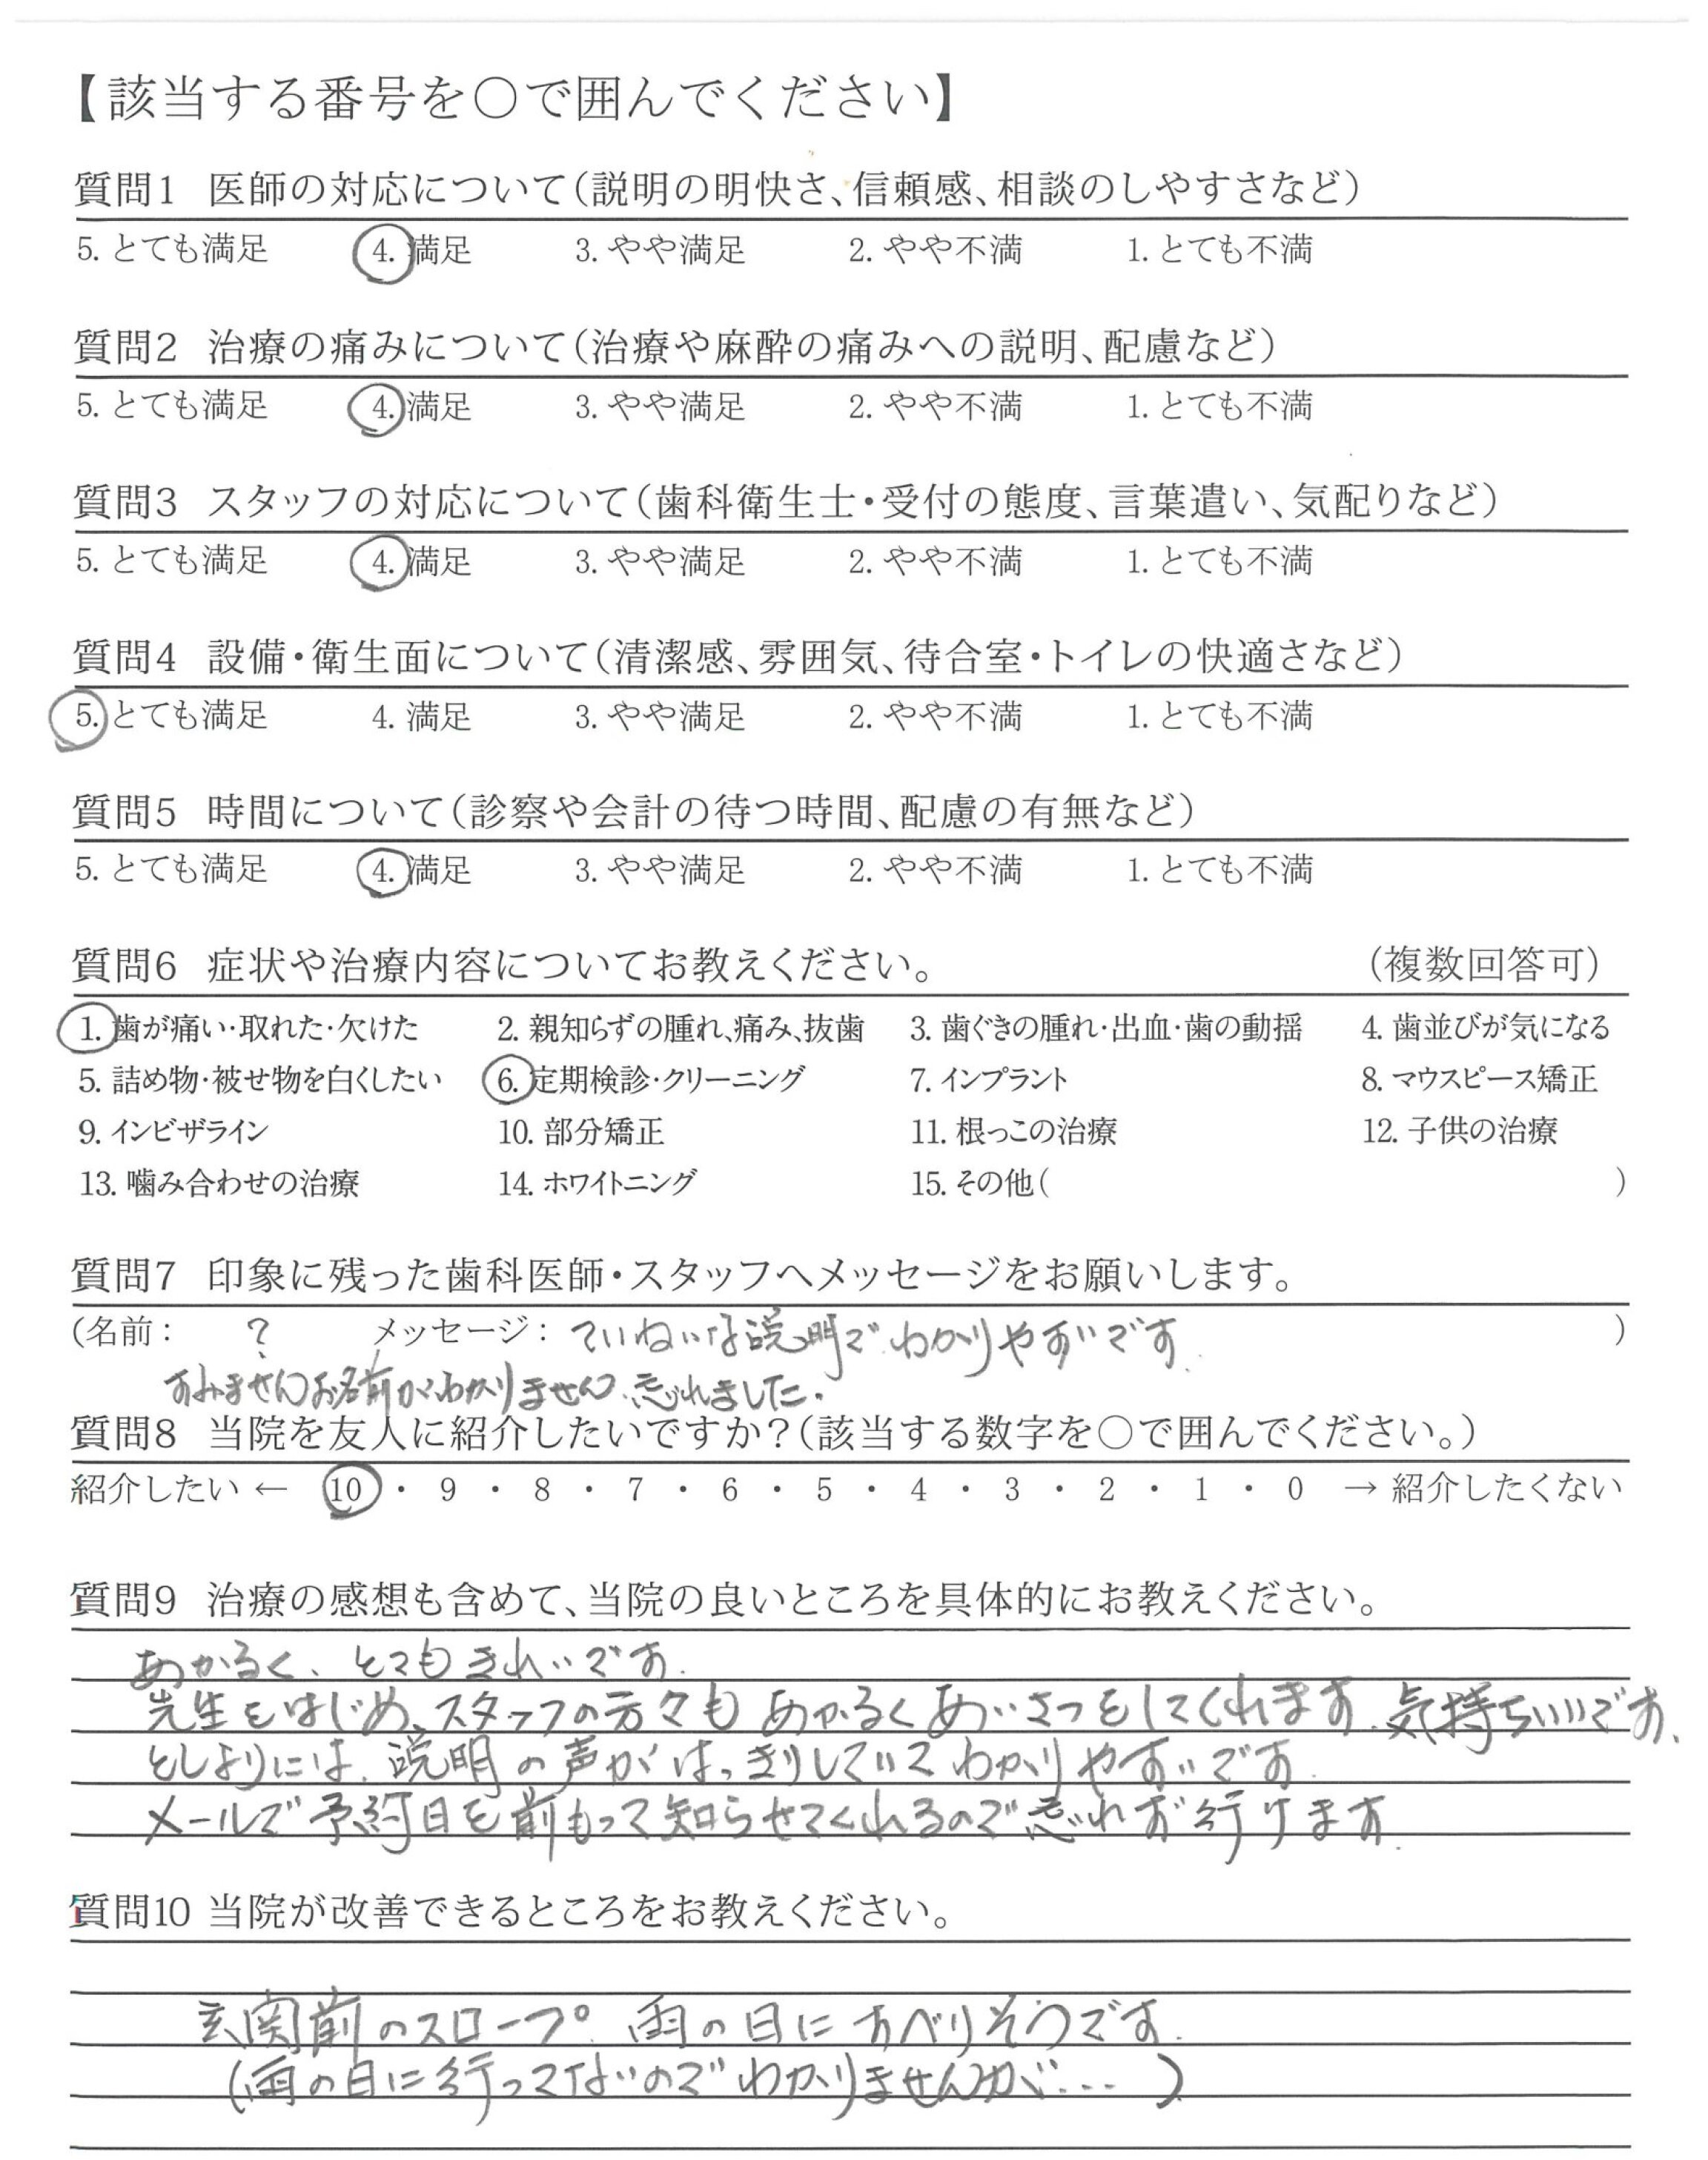 【該当する番号を○で囲んでください】
質問1 医師の対応について(説明の明快さ、信頼感、相談のしやすさなど)
5. とても満足 4. 満足 3. やや満足 2. やや不満 1. とても不満
質問2 治療の痛みについて(治療や麻酔の痛みへの説明、配慮など)
5. とても満足 4. 満足 3. やや満足 2. やや不満 1. とても不満
質問3 スタッフの対応について(歯科衛生士・受付の態度、言葉遣い、気配りなど)
5. とても満足 4. 満足 3. やや満足 2. やや不満 1. とても不満
質問4 設備・衛生面について(清潔感、雰囲気、待合室・トイレの快適さなど)
5. とても満足 4. 満足 3. やや満足 2. やや不満 1. とても不満
質問5 時間について(診察や会計の待つ時間、配慮の有無など)
5. とても満足 4. 満足 3. やや満足 2. やや不満 1. とても不満
質問6 症状や治療内容についてお教えください。 (複数回答可)
1. 歯が痛い・取れた・欠けた 2. 親知らずの腫れ、痛み、抜歯 3. 歯ぐきの腫れ・出血・歯の動揺 4. 歯並びが気になる
5. 詰め物・被せ物を白くしたい 6. 定期検診・クリーニング 7. インプラント 8. マウスピース矯正
9. インビザライン 10. 部分矯正 11. 根っこの治療 12. 子供の治療
13. 噛み合わせの治療 14. ホワイトニング 15. その他( )
質問7 印象に残った歯科医師・スタッフへメッセージをお願いします。
(名前: ? メッセージ: ていねいな説明でわかりやすいです. )
すみませんお名前がわかりません.忘れました.
質問8 当院を友人に紹介したいですか?(該当する数字を○で囲んでください。)
紹介したい ← 10 ・ 9 ・ 8 ・ 7 ・ 6 ・ 5 ・ 4 ・ 3 ・ 2 ・ 1 ・ 0 → 紹介したくない
質問9 治療の感想も含めて、当院の良いところを具体的にお教えください。
あかるく、とてもきれいです.
先生をはじめ、スタッフの方々もあかるくあいさつをしてくれます.気持ちいいです、
としよりには、説明の声がはっきりしていてわかりやすいです.
メールで予約日を前もって知らせてくれるので忘れず行けます.
質問10 当院が改善できるところをお教えください。
玄関前のスロープ.雨の日にすべりそうです.
(雨の日に行ってないのでわかりませんが... )